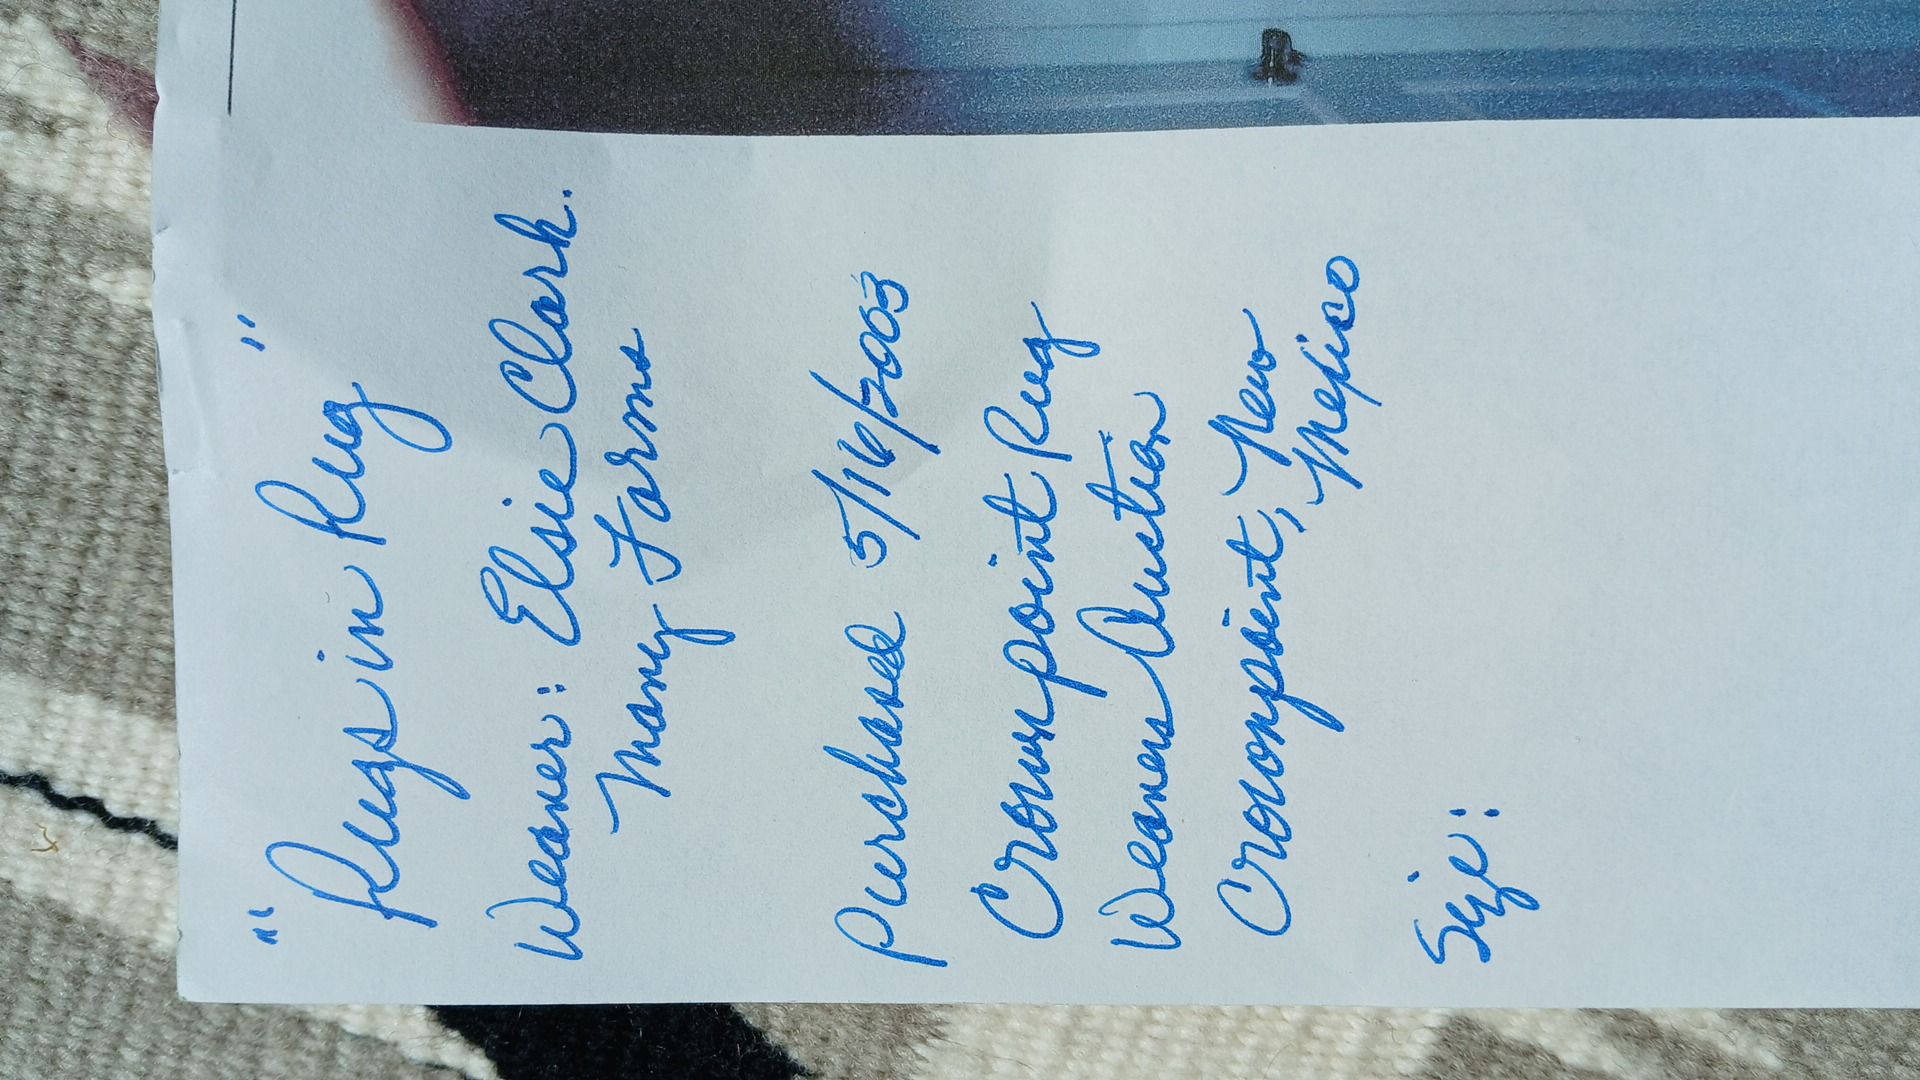 "Rugs in Rug"
Weaver: Elsie Clark.
Many Farms
Purchased 5/16/2003
Crownpoint Rug
Weavers Auction
Crownpoint, New
Mexico
Size: